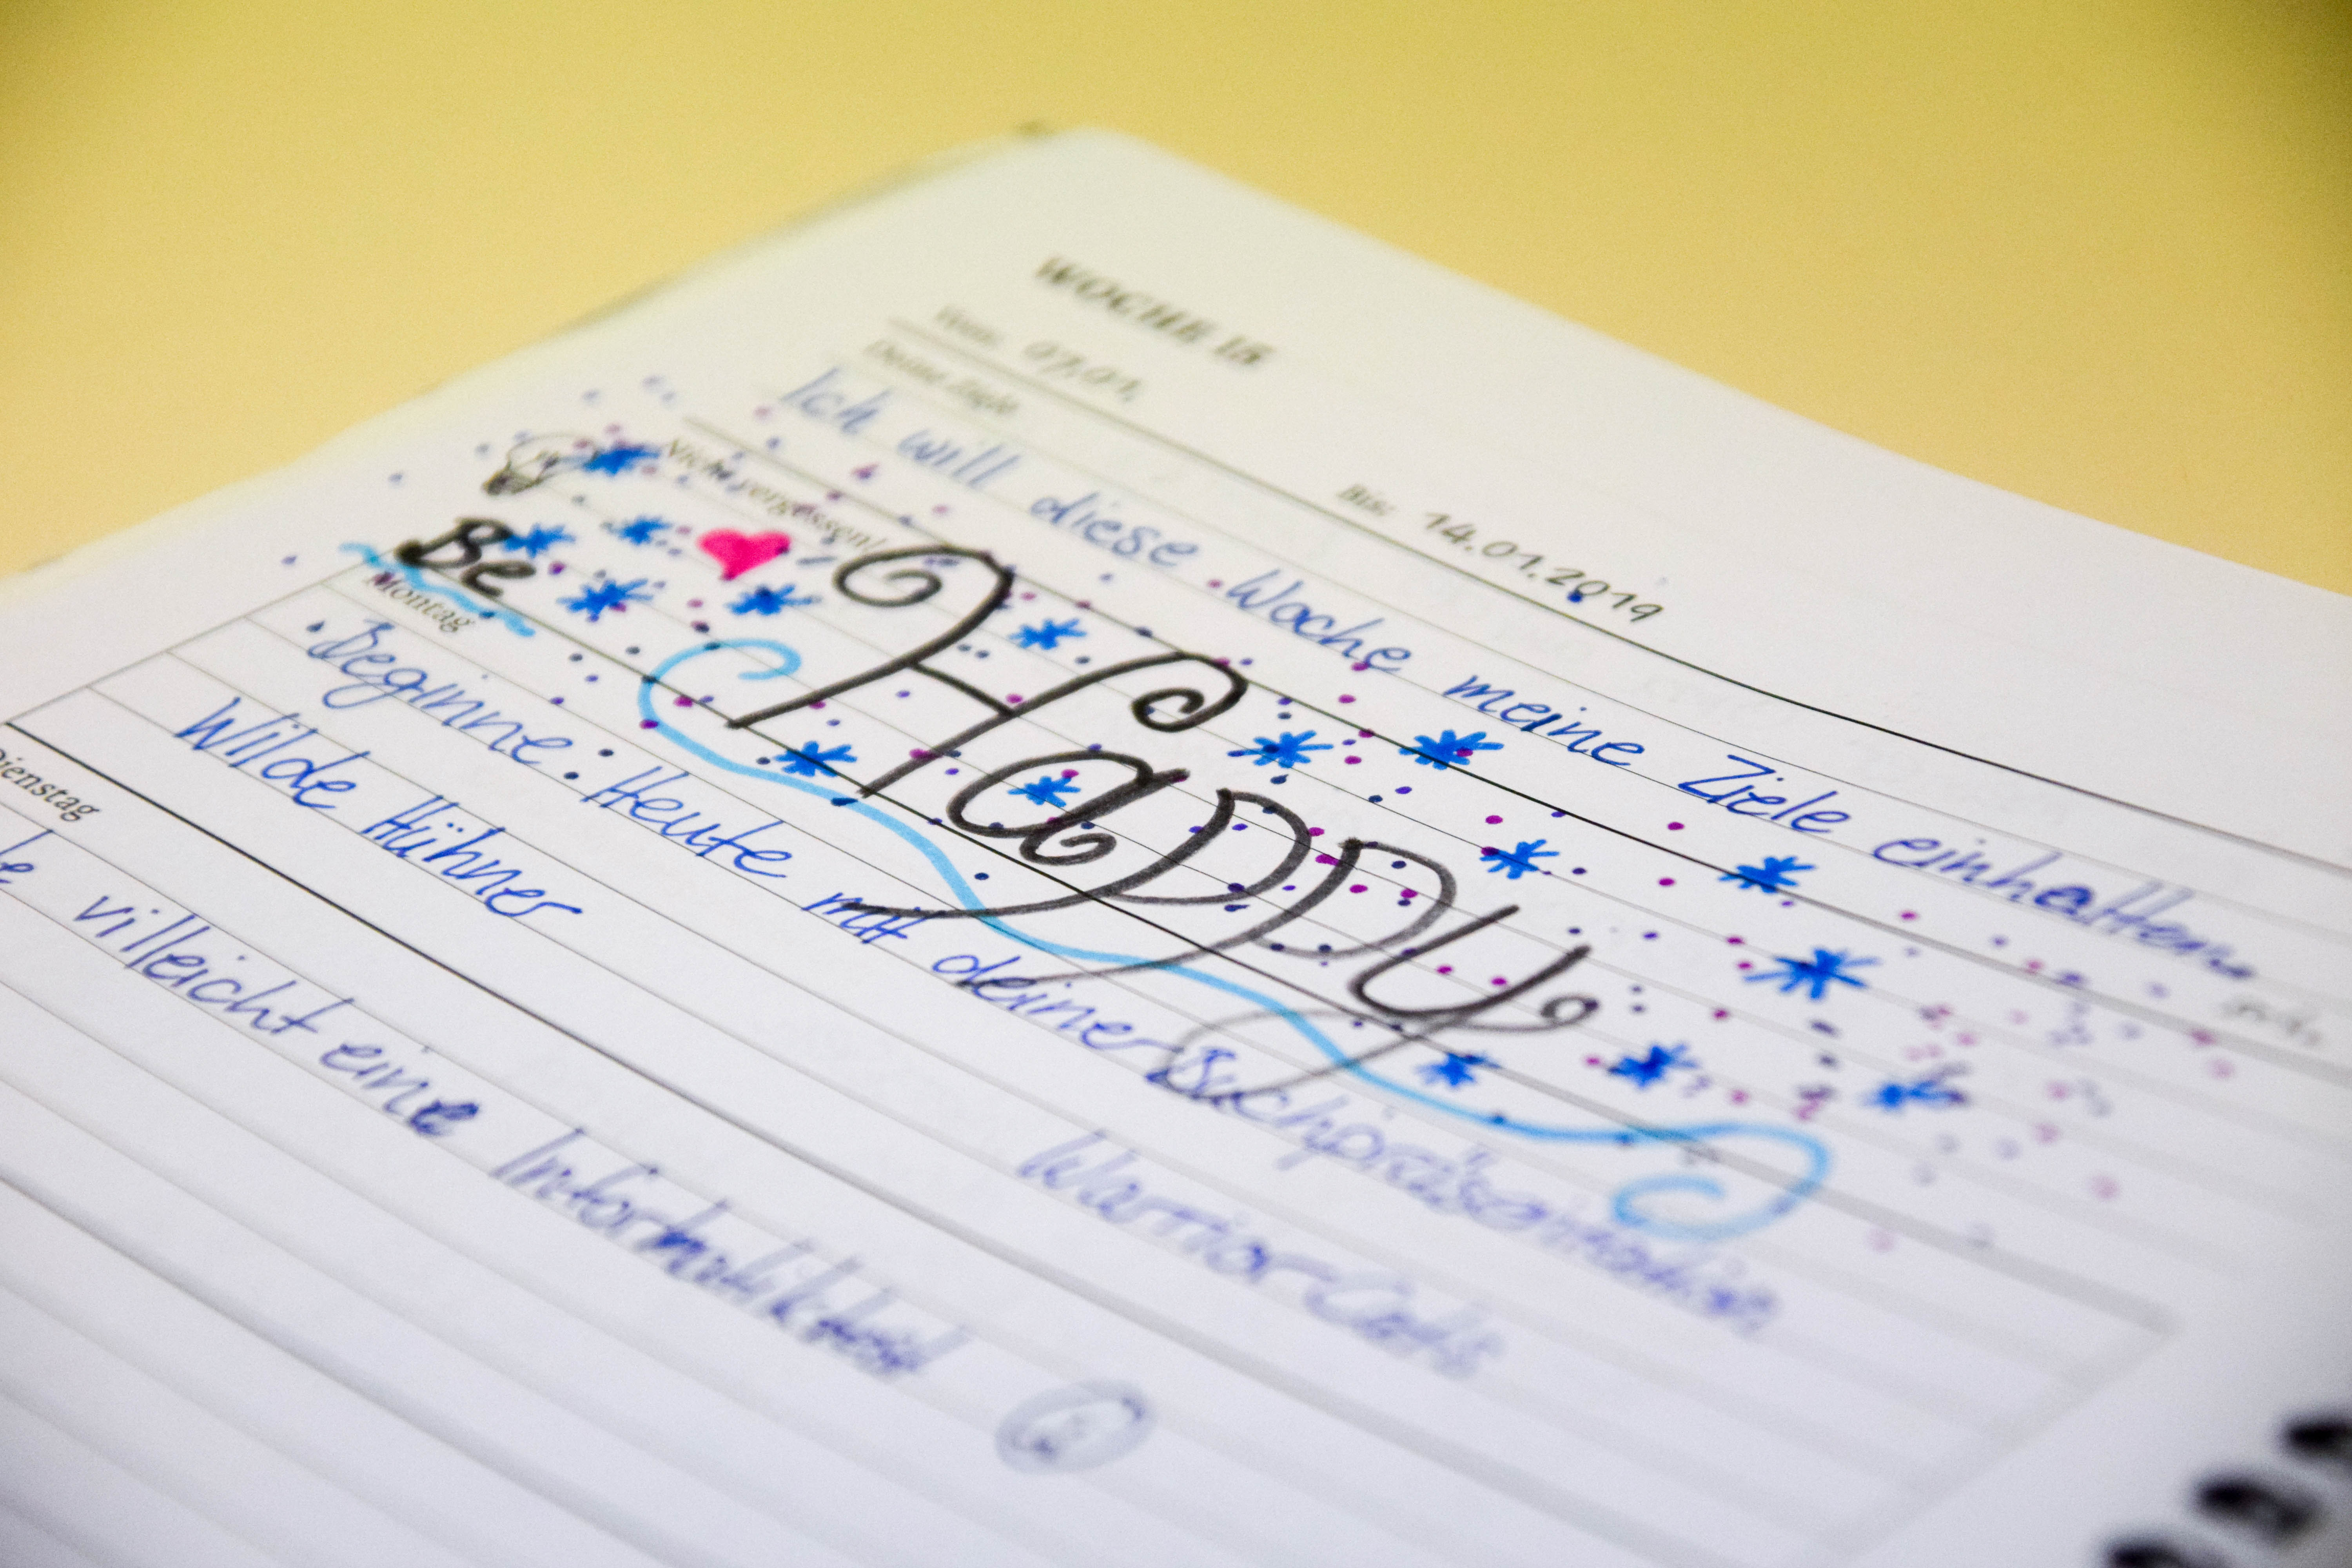 WOCHE 18
Vom: 07.01.
Bis: 14.01.2019
Deine Ziele
Ich will diese Woche meine Ziele einhalten
Nicht vergessen!
Be Happy
Montag
Beginne Heute mit deiner Buchpräsentation
Wilde Hühner Warrior Cats
Dienstag
villeicht eine